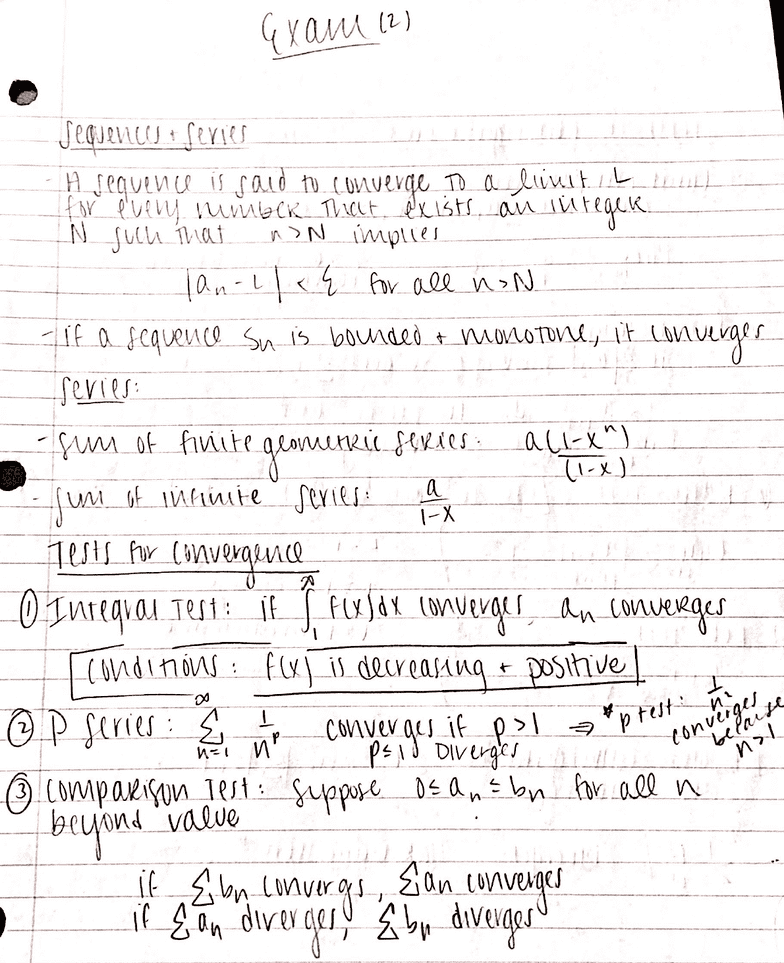 Exam (2)
Sequences + Series
- A sequence is said to converge to a limit L
for every number that exists an integer
N such that n>N implies
|aₙ - L| < ε for all n>N
- if a sequence Sₙ is bounded + monotone, it converges
Series:
- Sum of finite geometric series: a(1-xⁿ)/(1-x)
- Sum of infinite series: a/(1-x)
Tests for convergence
① Integral Test: if ∫₁^∞ f(x)dx converges, aₙ converges
Conditions: f(x) is decreasing + positive
② P series: ∑_{n=1}^∞ 1/n^p converges if p>1 ⇒ *p test: 1/n² converges because n>1
p≤1 Diverges
③ Comparison Test: Suppose 0≤aₙ≤bₙ for all n
beyond value
if ∑bₙ convergs, ∑aₙ converges
if ∑aₙ diverges, ∑bₙ diverges